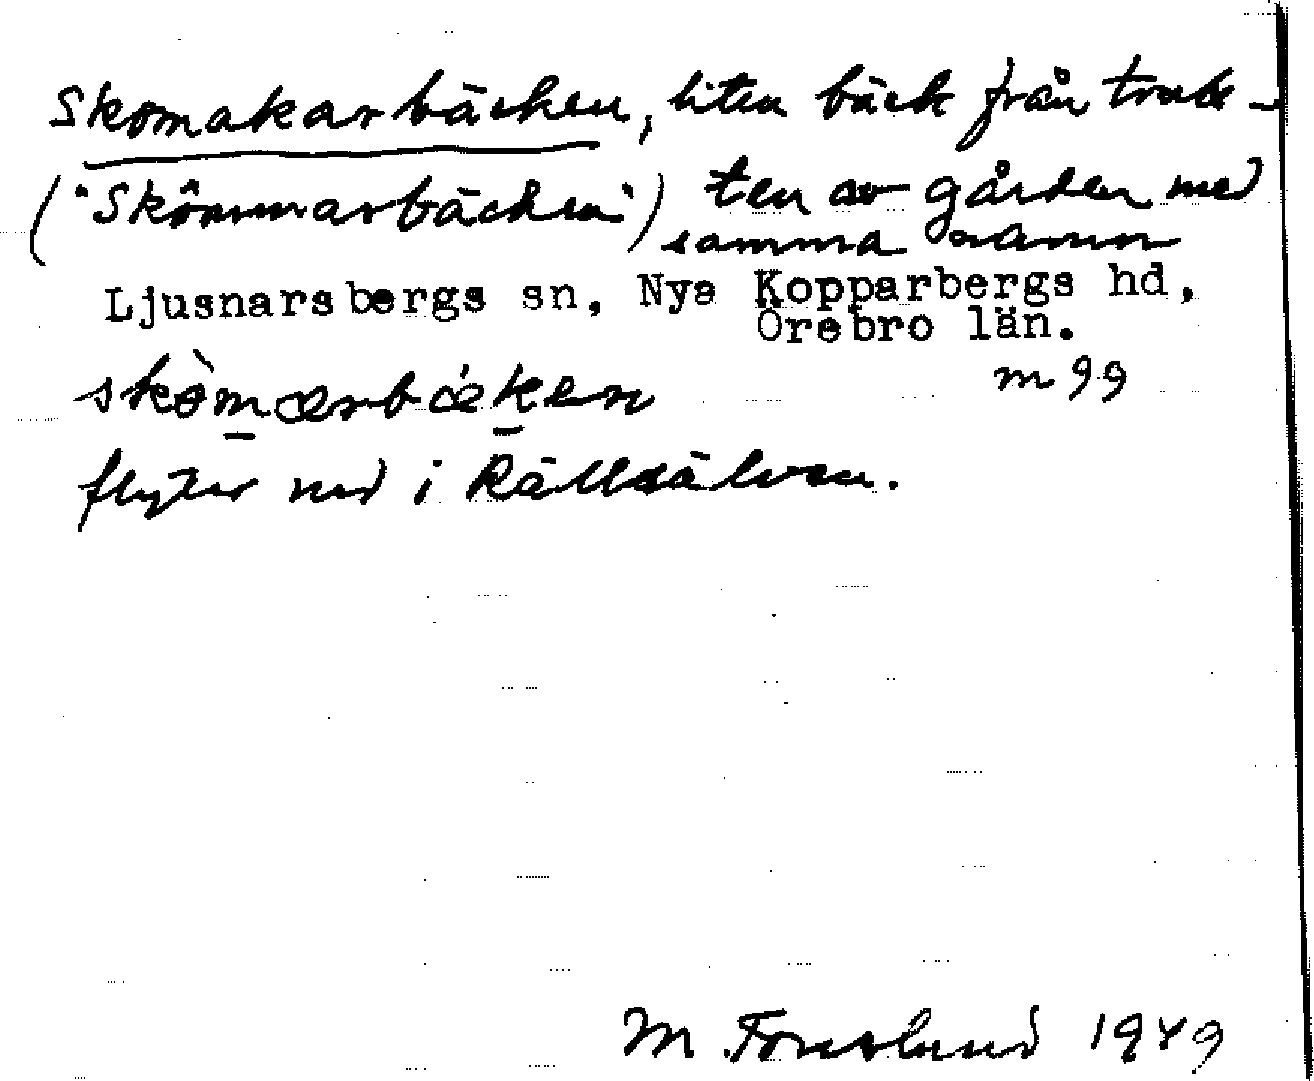 Skomakarbäcken, liten bäck från trak-
("Skômmarbäcken") ten av gården med
samma namn
Ljusnarsbergs sn, Nya Kopparbergs hd,
Örebro län.
skòmarbäken m 99
flyter ned i Rällsälven.
M. Forslund 1949